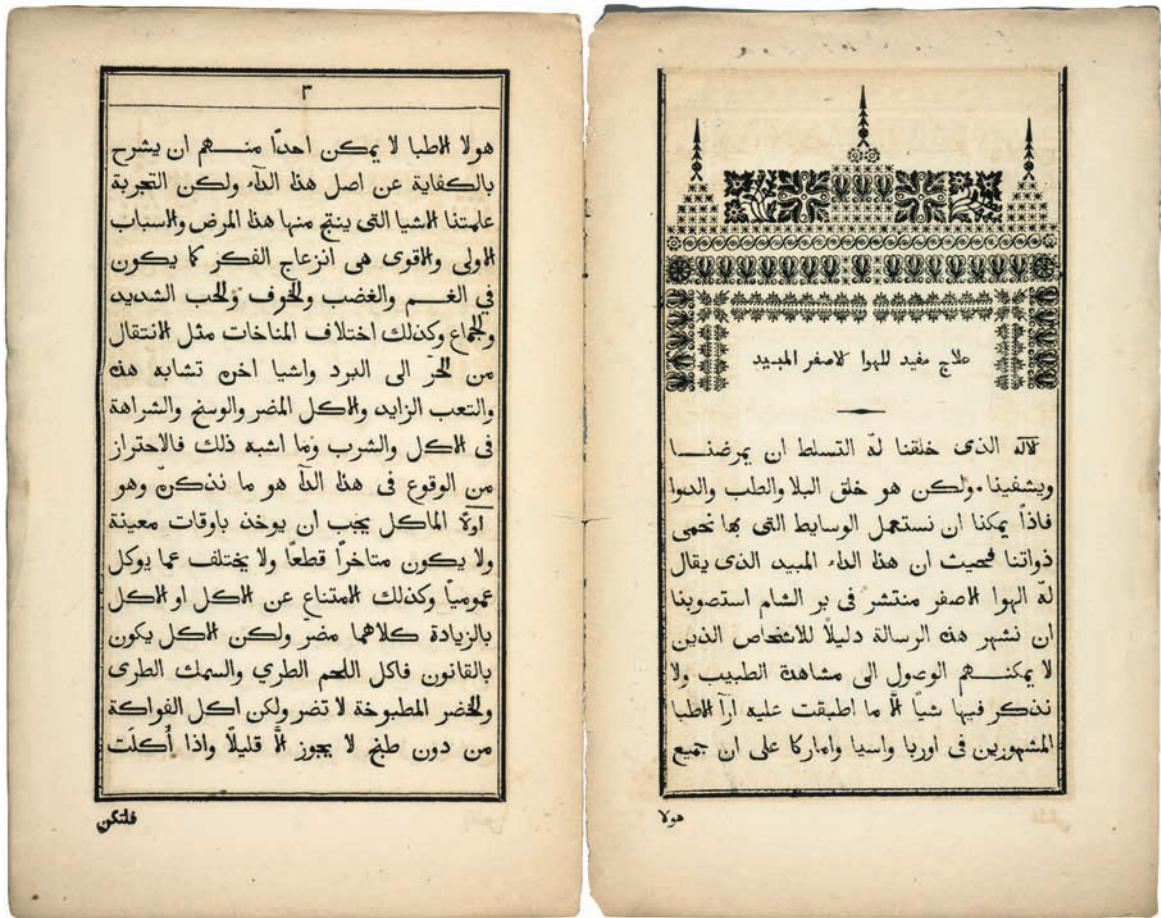 علاج مفيد للهوا الاصفر المبيد
الاله الذى خلقنا لهُ التسلط ان يمرضنا
ويشفينا. ولكن هو خلق البلا والطب والدوا
فاذاً يمكنا ان نستعمل الوسايط التى بها نحمى
ذواتنا فحيث ان هذا الداء المبيد الذى يقال
لهُ الهوا الاصفر منتشر فى بر الشام استصوبنا
ان نشهر هذه الرسالة دليلًا للاشخاص الذين
لا يمكنهم الوصول الى مشاهدة الطبيب ولا
نذكر فيها شياً الَّا ما اطبقت عليه ارآ الاطبا
المشهورين فى اوربا واسيا واماركا على ان جميع
هولا
٣
هولا الاطبا لا يمكن احداً منهم ان يشرح
بالكفاية عن اصل هذا الداء ولكن التجربة
علمتنا الاشيا التى ينتج منها هذا المرض والاسباب
الاولى والاقوى هى انزعاج الفكر كما يكون
في الغم والغضب والخوف والحب الشديد
والجماع وكذلك اختلاف المناخات مثل الانتقال
من الحرّ الى البرد واشيا اخرَ تشابه هذه
والتعب الزايد والاكل المضر والوسخ والشراهة
فى الاكل والشرب وما اشبه ذلك فالاحتراز
من الوقوع فى هذا الدآ هو ما نذكرهُ وهو
اولًا الماكل يجب ان يوخذ باوقات معينة
ولا يكون متاخراً قطعاً ولا يختلف عما يوكل
عمومياً وكذلك الامتناع عن الاكل او الاكل
بالزيادة كلاهما مضرّ ولكن الاكل يكون
بالقانون فاكل اللحم الطري والسمك الطرى
والخضر المطبوخة لا تضر ولكن اكل الفواكة
من دون طبخ لا يجوز الَّا قليلًا واذا أُكلَت
فلتكن